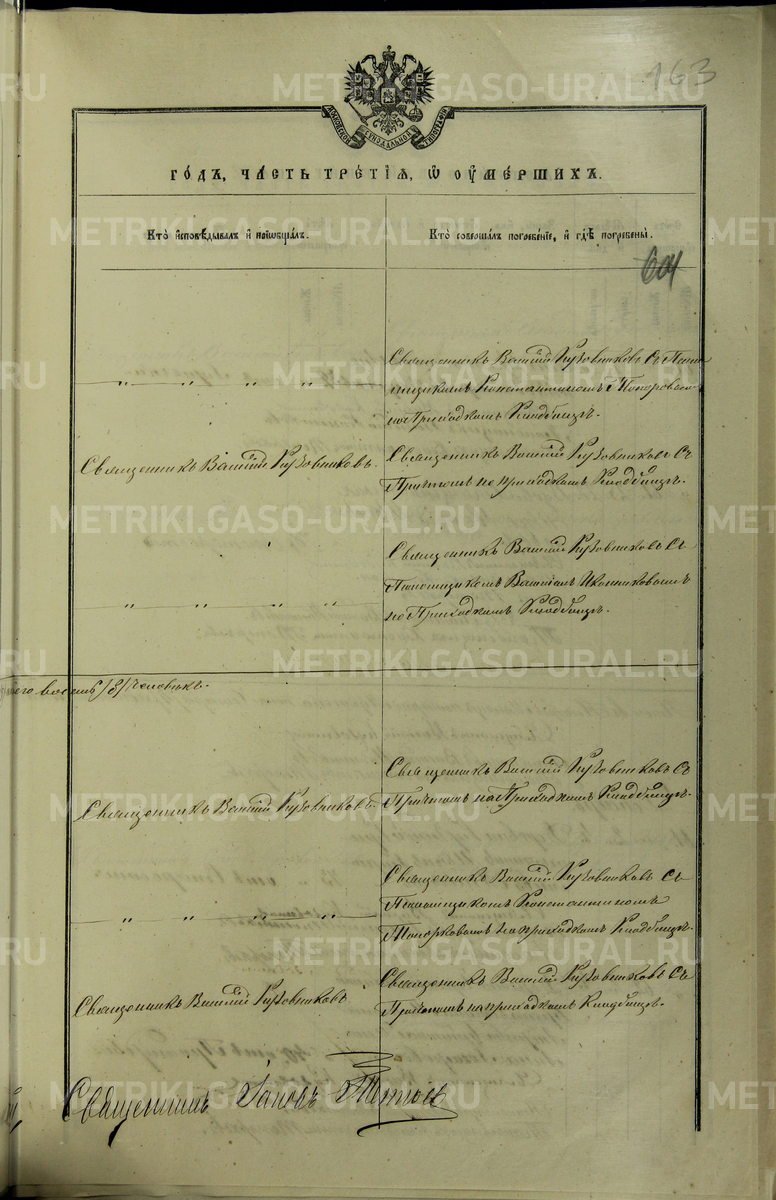 163
МОСКОВСКОЙ СѴНОДАЛЬНОЙ ТИПОГРАФІИ
ГОДЪ, ЧАСТЬ ТРЕТІЯ, Ѡ ОУМЕРШИХЪ.
Кто исповѣдывалъ и пріобщалъ.
Кто совершалъ погребеніе, и гдѣ погребены.
604
" " " "
Священникъ Василій Кузовниковъ съ
Константиномъ Топорковымъ
на Приходкомъ Кладбищѣ.
Священникъ Василій Кузовниковъ.
Священникъ Василій Кузовниковъ съ
Причтомъ на приходкомъ Кладбищѣ.
" " " "
Священникъ Василій Кузовниковъ съ
Василіемъ Иконниковымъ
на Приходкомъ Кладбищѣ.
восемь /8/ человѣкъ.
Священникъ Василій Кузовниковъ.
Священникъ Василій Кузовниковъ съ
Причтомъ на Приходкомъ Кладбищѣ.
" " " "
Священникъ Василій Кузовниковъ съ
Константиномъ
Топорковымъ на приходкомъ Кладбищѣ.
Священникъ Василій Кузовниковъ
Священникъ Василій Кузовниковъ съ
Причтомъ на приходкомъ Кладбищѣ.
Священникъ
METRIKI.GASO-URAL.RU